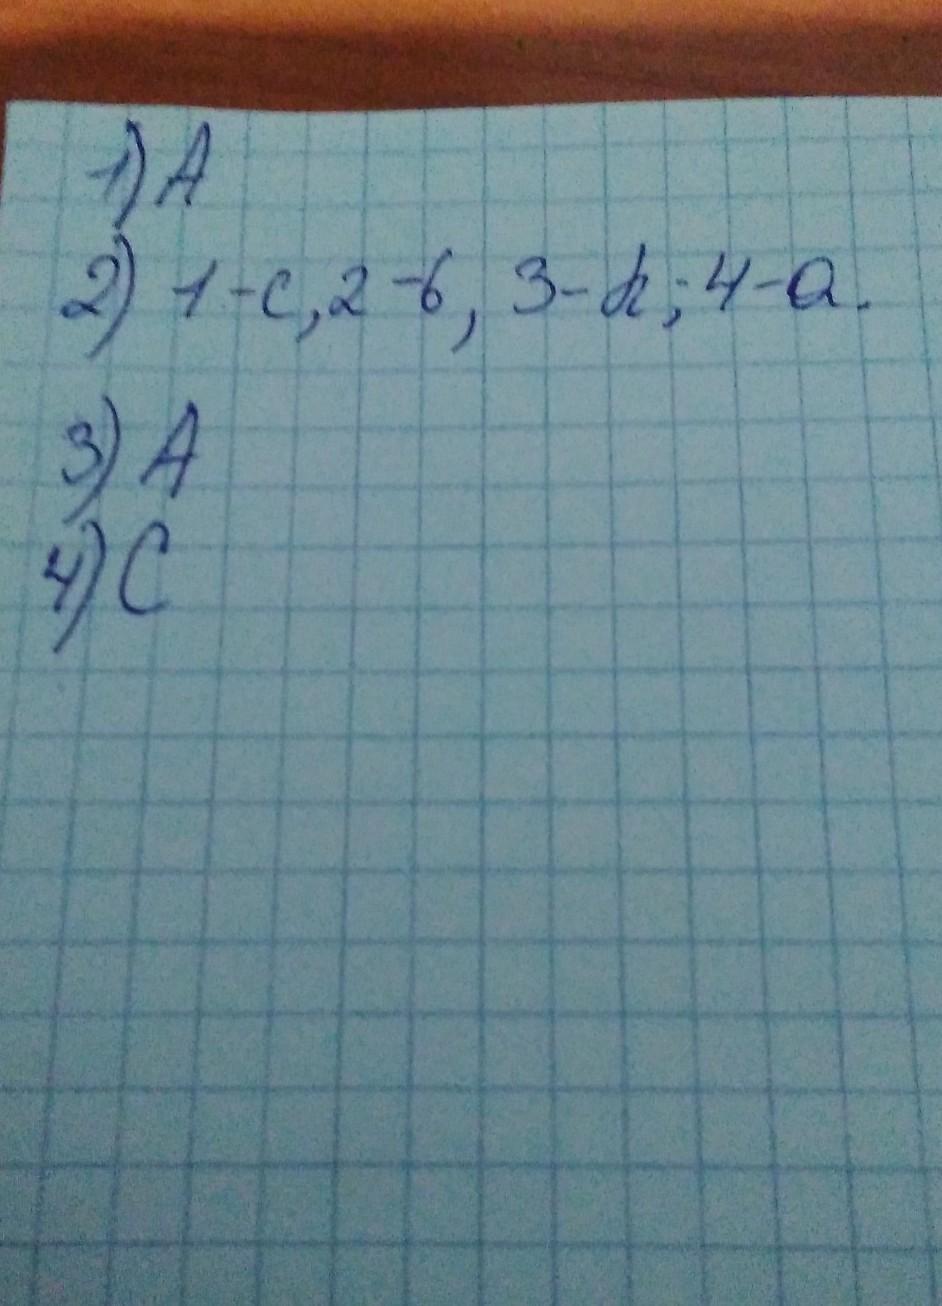 1) A
2) 1-c, 2-б, 3- ; 4-a.
3) A
4) C